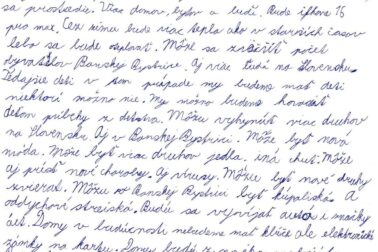 sa prostredie. Viac domov, bytov a ľudí. Bude iPhone 15
pro max. Cez zimu bude viac tepla ako v starších časov
lebo sa bude oteplovať. Môže sa zväčšiť počet
obyvateľov Banskej Bystrice. Aj viac ľudí na Slovensku.
Tedajšie deti v tom prípade my budeme mať deti
niektorí možno nie. My možno budeme hovoriť
deťom príbehy z detstva. Môžu vyhynúť viac druhov
na Slovensku Aj v Banskej Bystrici. Môže byť nová
móda. Môže byť viac druhov jedla, iná chuť. Môže
Aj prísť nové choroby. Aj vírusy. Môžu byť nové druhy
zvierat. Môžu v Banskej Bystrici byť kúpaliská. A
oddychové strediská. Budú sa vyvíjať autá a značky
áut. Domy v budúcnosti nebudeme mať kľúče ale elektronické
zámky na kartu. Domy budú z